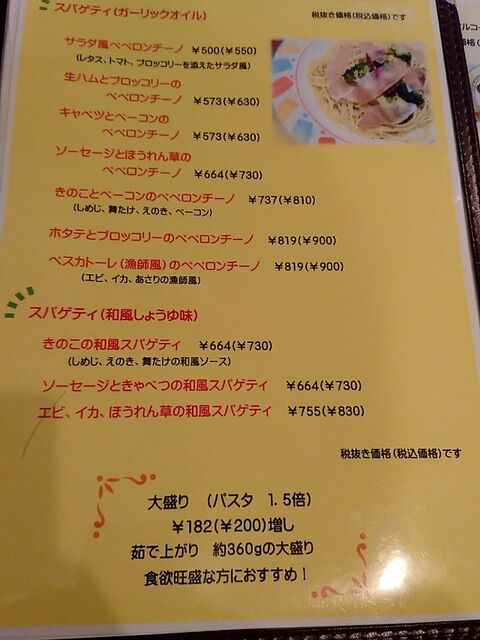 スパゲティ(ガーリックオイル)
税抜き価格(税込価格)です
サラダ風ペペロンチーノ ¥500(¥550)
(レタス、トマト、ブロッコリーを添えたサラダ風)
生ハムとブロッコリーの
ペペロンチーノ ¥573(¥630)
キャベツとベーコンの
ペペロンチーノ ¥573(¥630)
ソーセージとほうれん草の
ペペロンチーノ ¥664(¥730)
きのことベーコンのペペロンチーノ ¥737(¥810)
(しめじ、舞たけ、えのき、ベーコン)
ホタテとブロッコリーのペペロンチーノ ¥819(¥900)
ペスカトーレ(漁師風)のペペロンチーノ ¥819(¥900)
(エビ、イカ、あさりの漁師風)
スパゲティ(和風しょうゆ味)
きのこの和風スパゲティ ¥664(¥730)
(しめじ、えのき、舞たけの和風ソース)
ソーセージときゃべつの和風スパゲティ ¥664(¥730)
エビ、イカ、ほうれん草の和風スパゲティ ¥755(¥830)
税抜き価格(税込価格)です
大盛り (パスタ 1.5倍)
¥182(¥200)増し
茹で上がり 約360gの大盛り
食欲旺盛な方におすすめ!